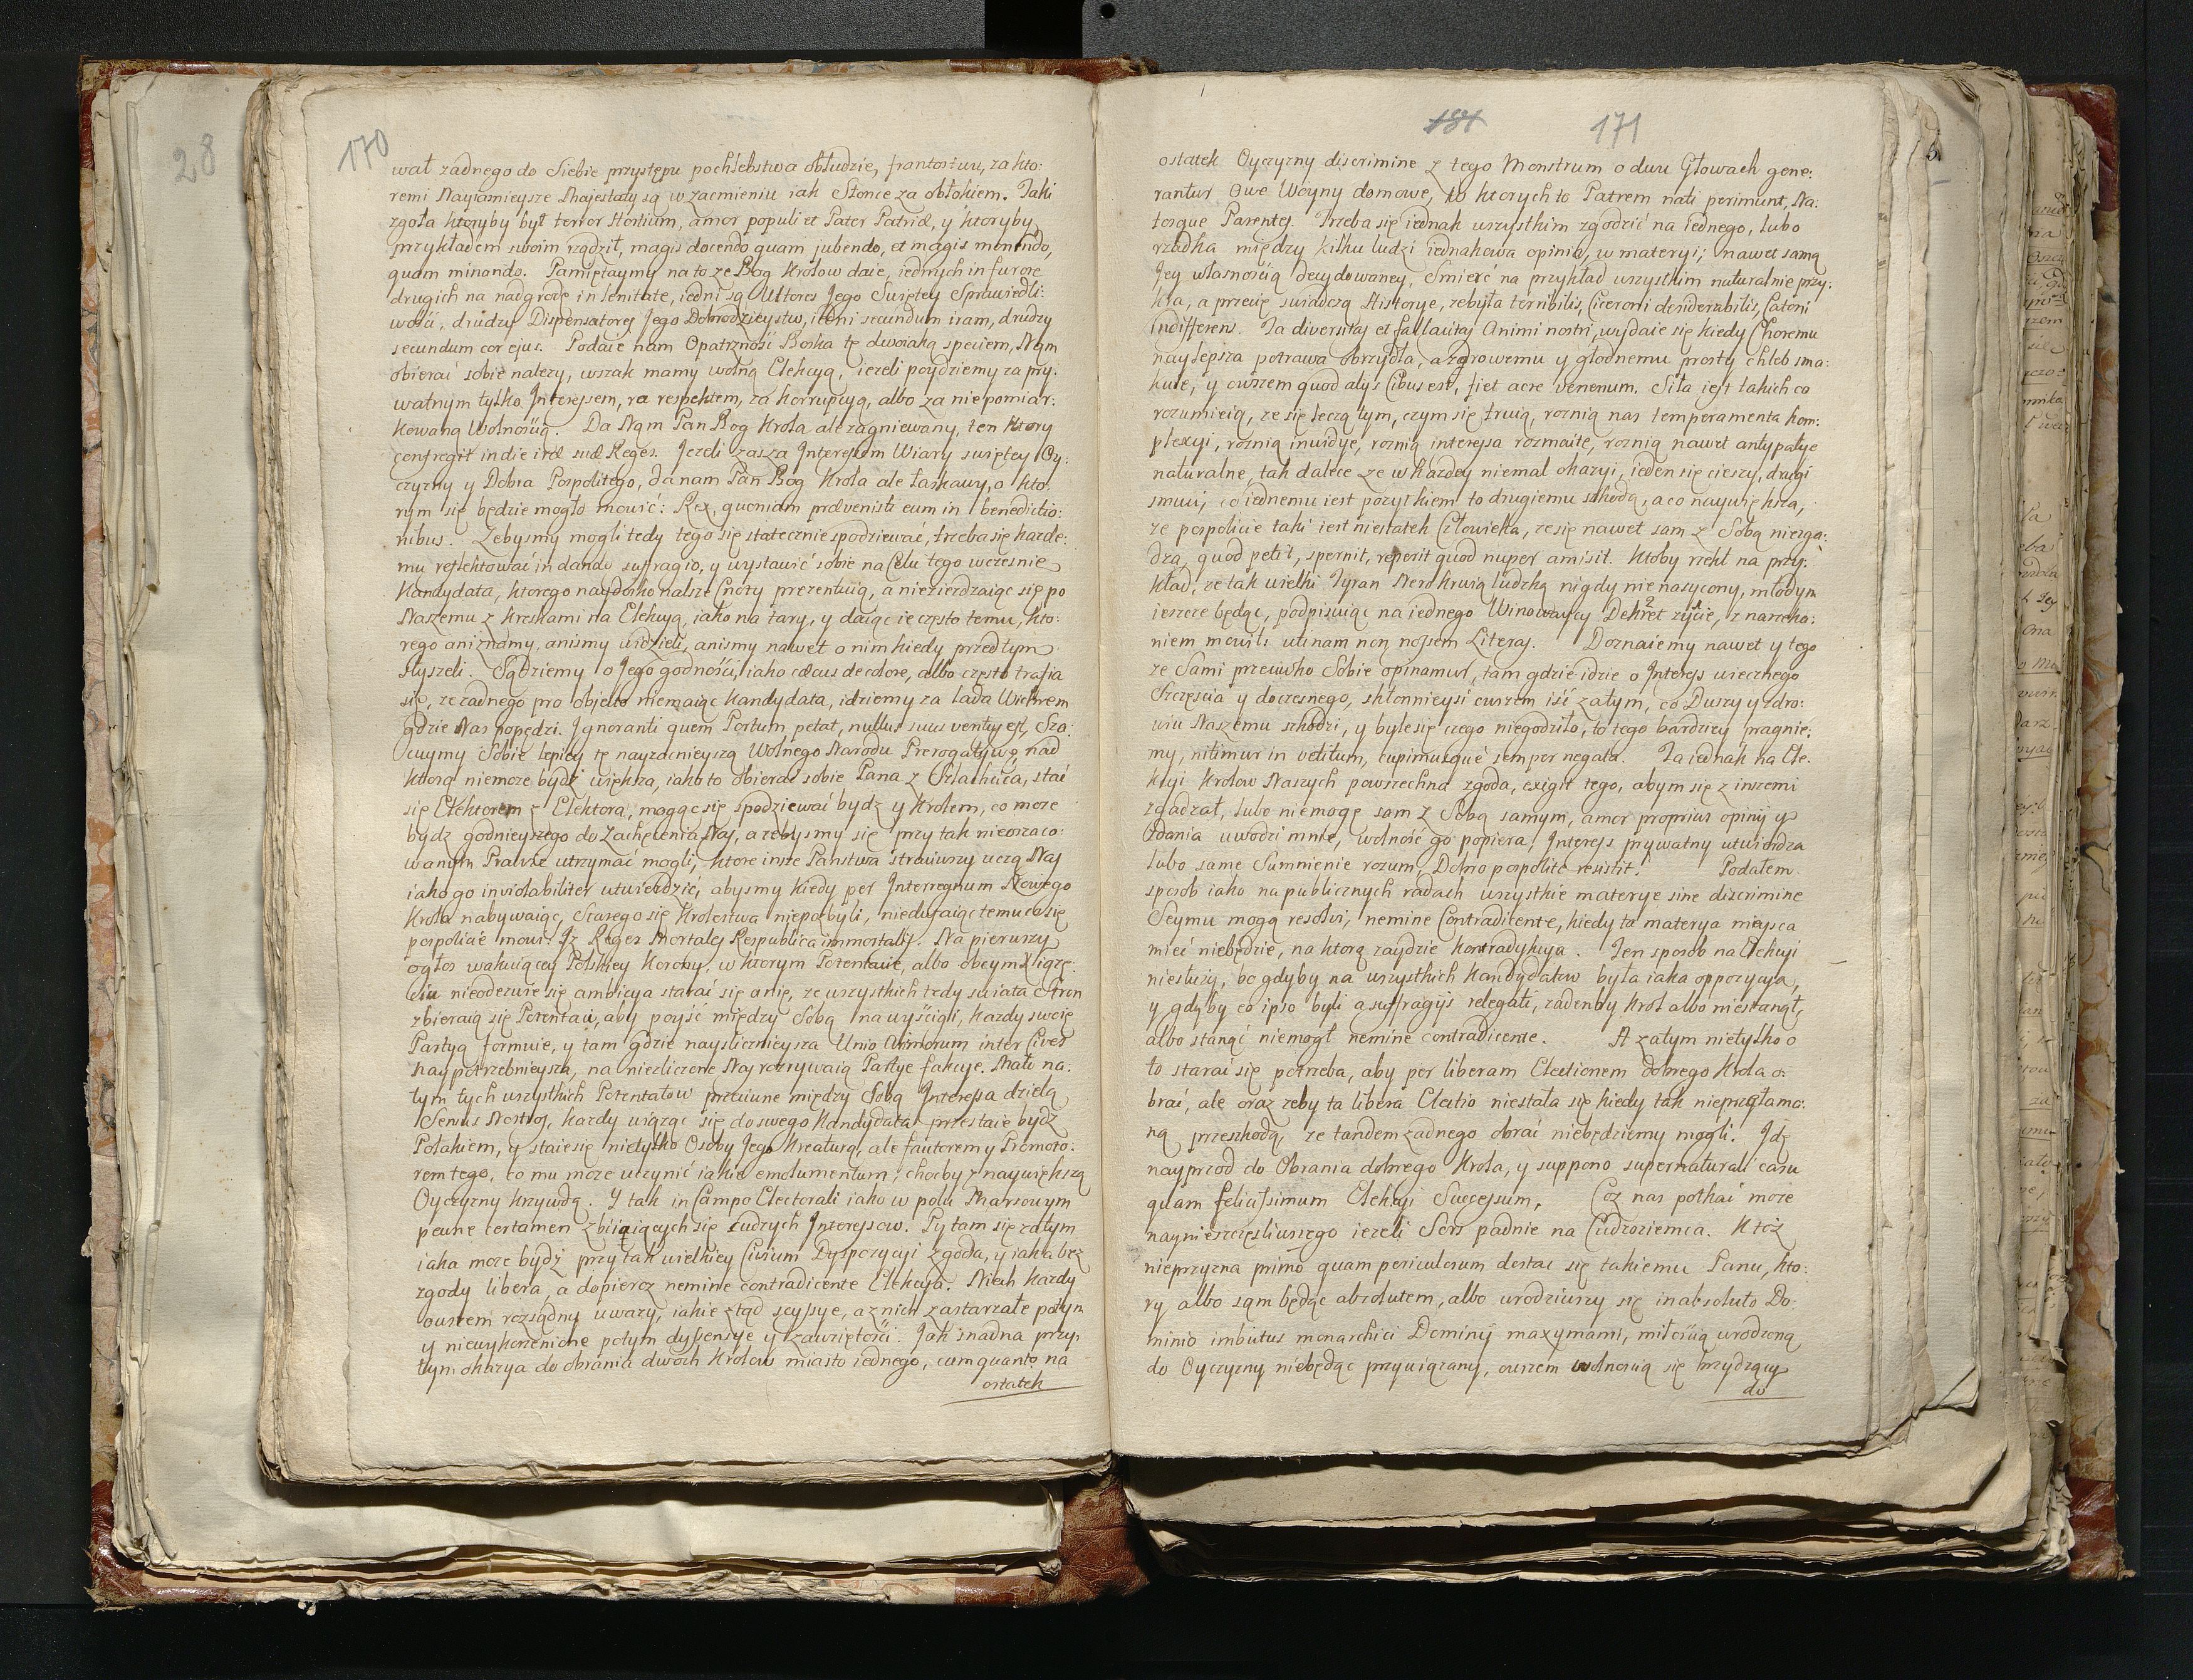 28
170
wał zadnego do Siebie przystępu pochlebstwa obłudzie, frantostwu, za kto:
remi Nayiasnieysze Majestaty są w zacmieniu iak Słonce za obłokiem. Taki
zgoła ktoryby był terror Hostium, amor populi et Pater Patriæ, y ktoryby
przykładem swoim rządził, magis docendo quam jubendo, et magis monendo,
quam minando. Pamiętaymy na to ze Bog Krolow daie, iednych in furore
drugich na nadgrodę in lenitate, iedni są Ultores Jego Swiętey Sprawiedli:
wości, drudzy Dispensatores Jego Dobrodzieystw, iedni secundum iram, drudzy
secundum cor ejus. Podaie nam Opatrznosc Boska tę dwoiaką speciem, Nam
obierać sobie nalezy, wszak mamy wolną Elekcyą, iezeli poydziemy za pry:
watnym tylko Interessem, za respektem, za korrupcyą, albo za niepomiar:
kowaną Wolnością. Da Nam Pan Bog Krola ale zagniewany, ten ktory
confregit in die iræ suæ Reges. Jezeli zasza Interessem Wiary swiętey Oy:
czyzny y Dobra Pospolitego, da nam Pan Bog Krola ale łaskawy, o kto:
rym się będzie mogło mowić: Rex, quoniam prævenisti eum in benedictio:
nibus. Zebysmy mogli tedy tego się statecznie spodziewać, trzeba się kazde:
mu reflektować in dando suffragio, y wystawić sobie na Celu tego wczesnie
Kandydata, ktorego naydoskonalsze Cnoty prezentuią, a niezierdzaiąc się po
Naszemu z Kreskami na Elekcyą, iako na targ, y daiąc ie często temu, kto:
rego ani znamy, anismy widzieli, anismy nawet o nim kiedy przedtym
słyszeli. Sądziemy o Jego godności, iako cæcus de colore, albo często trafia
się, ze zadnego pro objecto niemaiąc Kandydata, idziemy za lada Wichrem
gdzie Nas popędzi. Ignoranti quem Portum petat, nullus suus ventus est, Sza:
cuymy Sobie lepiey tę nayzacnieyszą Wolnego Narodu Prerogatywę nad
ktorą niemoze bydz większa, iako to obierać sobie Pana z Szlachcica, stać
się Elektorem z Elektora, mogąc się spodziewać bydz y Krolem, co moze
bydz godnieyszego do Zachęcenia Nas, a zebysmy się przy tak nieoszaco:
wanym Prawie utrzymać mogli, ktore insze Panstwa straciwszy uczą Nas
iako go inviolabiliter utwierdzić, abysmy kiedy per Interregnum Nowego
Krola nabywaiąc, Starego się Krolestwa niepozbyli, niedufaiąc temu co się
pospolicie mowi: Iz Reges Mortales Respublica immortalis. Na pierwszy
ogłos wakuiącey Polskiey Korony, w ktorym Potentacie, albo obcym Xiązę:
ciu nieodezwie się ambicya starać się o nię, ze wszystkich tedy swiata Stron
zbieraią się Potentaci, aby poyść między Sobą na wyścigi, kazdy swoię
Partyą formuie, y tam gdzie nayslicznieysza Unio Animorum inter Cives
naypotrzebnieysza, na niezliczone Nas rozrywaią Partye fakcye. Mało na:
tym tych wszystkich Potentatow przeciwne między Sobą Interessa dzielą
Sensus Nostros, kazdy wiążąc się do swego Kandydata przestaie bydz
Polakiem, y staie się nietylko Osoby Jego Kreaturą, ale fautorem y Promoto:
rem tego, co mu moze uczynić iakie emolumentum, choćby z naywiększą
Oyczyzny krzywdą. Y tak in Campo Electorali iako w polu Marsowym
pewne certamen zbiiaiących się cudzych Interessow. Pytam się zatym
iaka moze bydz przy tak wielkiey Civium Dyspozycyi zgoda, y iaka bez
zgody libera, a dopieroz nemine contradicente Elekcya. Niech kazdy
owszem rozsądny uwazy, iakie ztąd scyssye, a z nich zastarzałe potym
y niewykorzenione potym dyssensye y zawziętości. Jak snadna przy:
tym okazya do obrania dwoch Krolow miasto iednego, cum quanto na
ostatek
181 171
ostatek Oyczyzny discrimine z tego Monstrum o dwu Głowach gene:
rantur owe Woyny domowe, do ktorych to Patrem nati perimunt, Na:
tosque Parentes. Trzeba się iednak wszystkim zgodzić na iednego, lubo
rzadka między kilku ludzi iednakowa opinia, w materyi, nawet samą
Jey własnością decydowaney, Smierć na przykład wszystkim naturalnie przy:
kra, a przecię swiadczą Historye, ze była terribilis, Ciceroni desiderabilis, Catoni
indifferens. Ta diversitas et fallacitas Animi nostri, wydaie się kiedy Choremu
naylepsza potrawa obrzydła, a zdrowemu y głodnemu prosty chleb sma:
kuie, y owszem quod alijs Cibus est, fiet acre venenum. Siła jest takich co
rozumieią, ze się leczą tym, czym się truią, roznią nas temperamenta kom:
plexyi, roznią inwidye, roznią interessa rozmaite, roznią nawet antypatye
naturalne, tak dalece ze w kazdey niemal okazyi, ieden się cieszy, drugi
smuci, co iednemu iest pozytkiem to drugiemu szkodą, a co naywiększa,
ze pospolicie taki iest niestatek Człowieka, ze się nawet sam z Sobą niezga:
dza, quod petit, spernit, repetit quod nuper amisit. Ktoby rzekł na przy:
kład, ze tak wielki Tyran Nero krwią ludzką nigdy nie nasycony, młodym
ieszcze będąc, podpisuiąc na iednego Winowaycę Dekret zycie, z narzeka:
niem mowił: utinam non nossem Literas. Doznaiemy nawet y tego
ze Sami przeciwko Sobie opinamur, tam gdzie idzie o Interess wiecznego
Szczęścia y doczesnego, skłonnieysi owszem iść zatym, co Duszy y zdro:
wiu Naszemu szkodzi, y byle się czego niegodziło, to tego bardziey pragnie:
my, nitimur in vetitum, cupimusque semper negata. Ta iednak na Ele:
kcyi Krolow Naszych powszechna zgoda, exigit tego, abym się z inszemi
zgadzał, lubo niemogę sam z Sobą samym, amor proprius opinij y
Zdania uwodzi mnie, wolność go popiera, Interess prywatny utwierdza
lubo same Sumnienie rozum, Dobro pospolite resistit. Podałem
sposob iako na publicznych radach wszystkie materye sine discrimine
Seymu mogą resolvi, nemine Contradicente, kiedy ta materya mieysca
mieć niebędzie, na ktorą zaydzie kontradykcya. Ten sposob na Elekcyi
niesłuzy, bo gdyby na wszystkich Kandydatow była iaka oppozycya,
y gdyby eo ipso byli a suffragijs relegati, zadenby Krol albo niestanął,
albo stanąć niemogł nemine contradicente. A zatym nietylko o
to starać się potrzeba, aby per liberam Electionem dobrego Krola o:
brać, ale oraz zeby ta libera Electio niestała się kiedy tak nieprzełama:
ną przeszkodą, ze tandem zadnego obrać niebędziemy mogli. Idę
nayprzod do Obrania dobrego Krola, y suppono supernaturali casu
quam felicissimum Elekcyi Successum, Coz nas potkać moze
nayniesczęśliwszego iezeli Sors padnie na Cudzoziemca. Ktoż
nieprzyzna primo quam periculosum dostac się takiemu Panu, kto:
ry albo sam będąc absolutem, albo urodziwszy się in absoluto Do:
minio imbutus monarchici Dominij maxymami, miłością urodzoną
do Oyczyzny niebędąc przywiązany, owszem wolnością się brzydzący
do